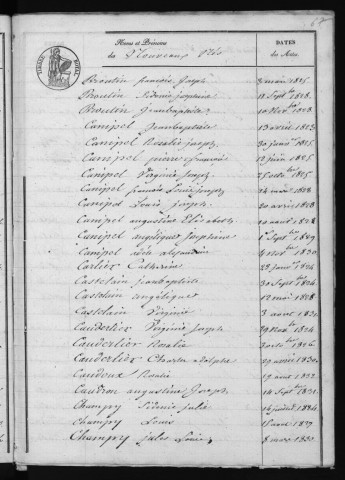 Noms et Prénoms
des Nouveaux Nés
DATES
des Actes.
TIMBRE ROYAL
Broutin françois Joseph mai 1825
Broutin Sidonie josephine 18 Sept.bre 1828
Broutin Jeanbaptiste 10 1828
Canipel Jeanbaptiste 13 avril 1823
Canipel Rosalie joseph 30 janvier 1825
Canipel pierre françois 12 juin 1825
Canipel Virginie Joseph 1825
Canipel françois Louis joseph 24 mai 1828
Canipel Louis joseph 20 avril 1823
Canipel augustine Elisabeth 20 aout 1828
Canipel angélique Josephine 1er Sept.bre 1829
Canipel adèle alexandrine 4 Nov.bre 1830
Carlier Catherine 28 janv.
Castelain jeanbaptiste 30 Sept.bre 1824
Castelain angélique 12 mai 1828
Castelain Virginie 3 avril
Cauderlier Virginie joseph 29 Nov.bre 1824
Cauderlier Rosalie 1826
Cauderlier Charles adolphe avril 1830
Caudoux Rosalie aout 1832
Caudron augustine Joseph 14 Sept.bre 1831
Champry Sidonie julie 16 1824
Champry Louis 1827
Champry jules Louis 8 mars 1830